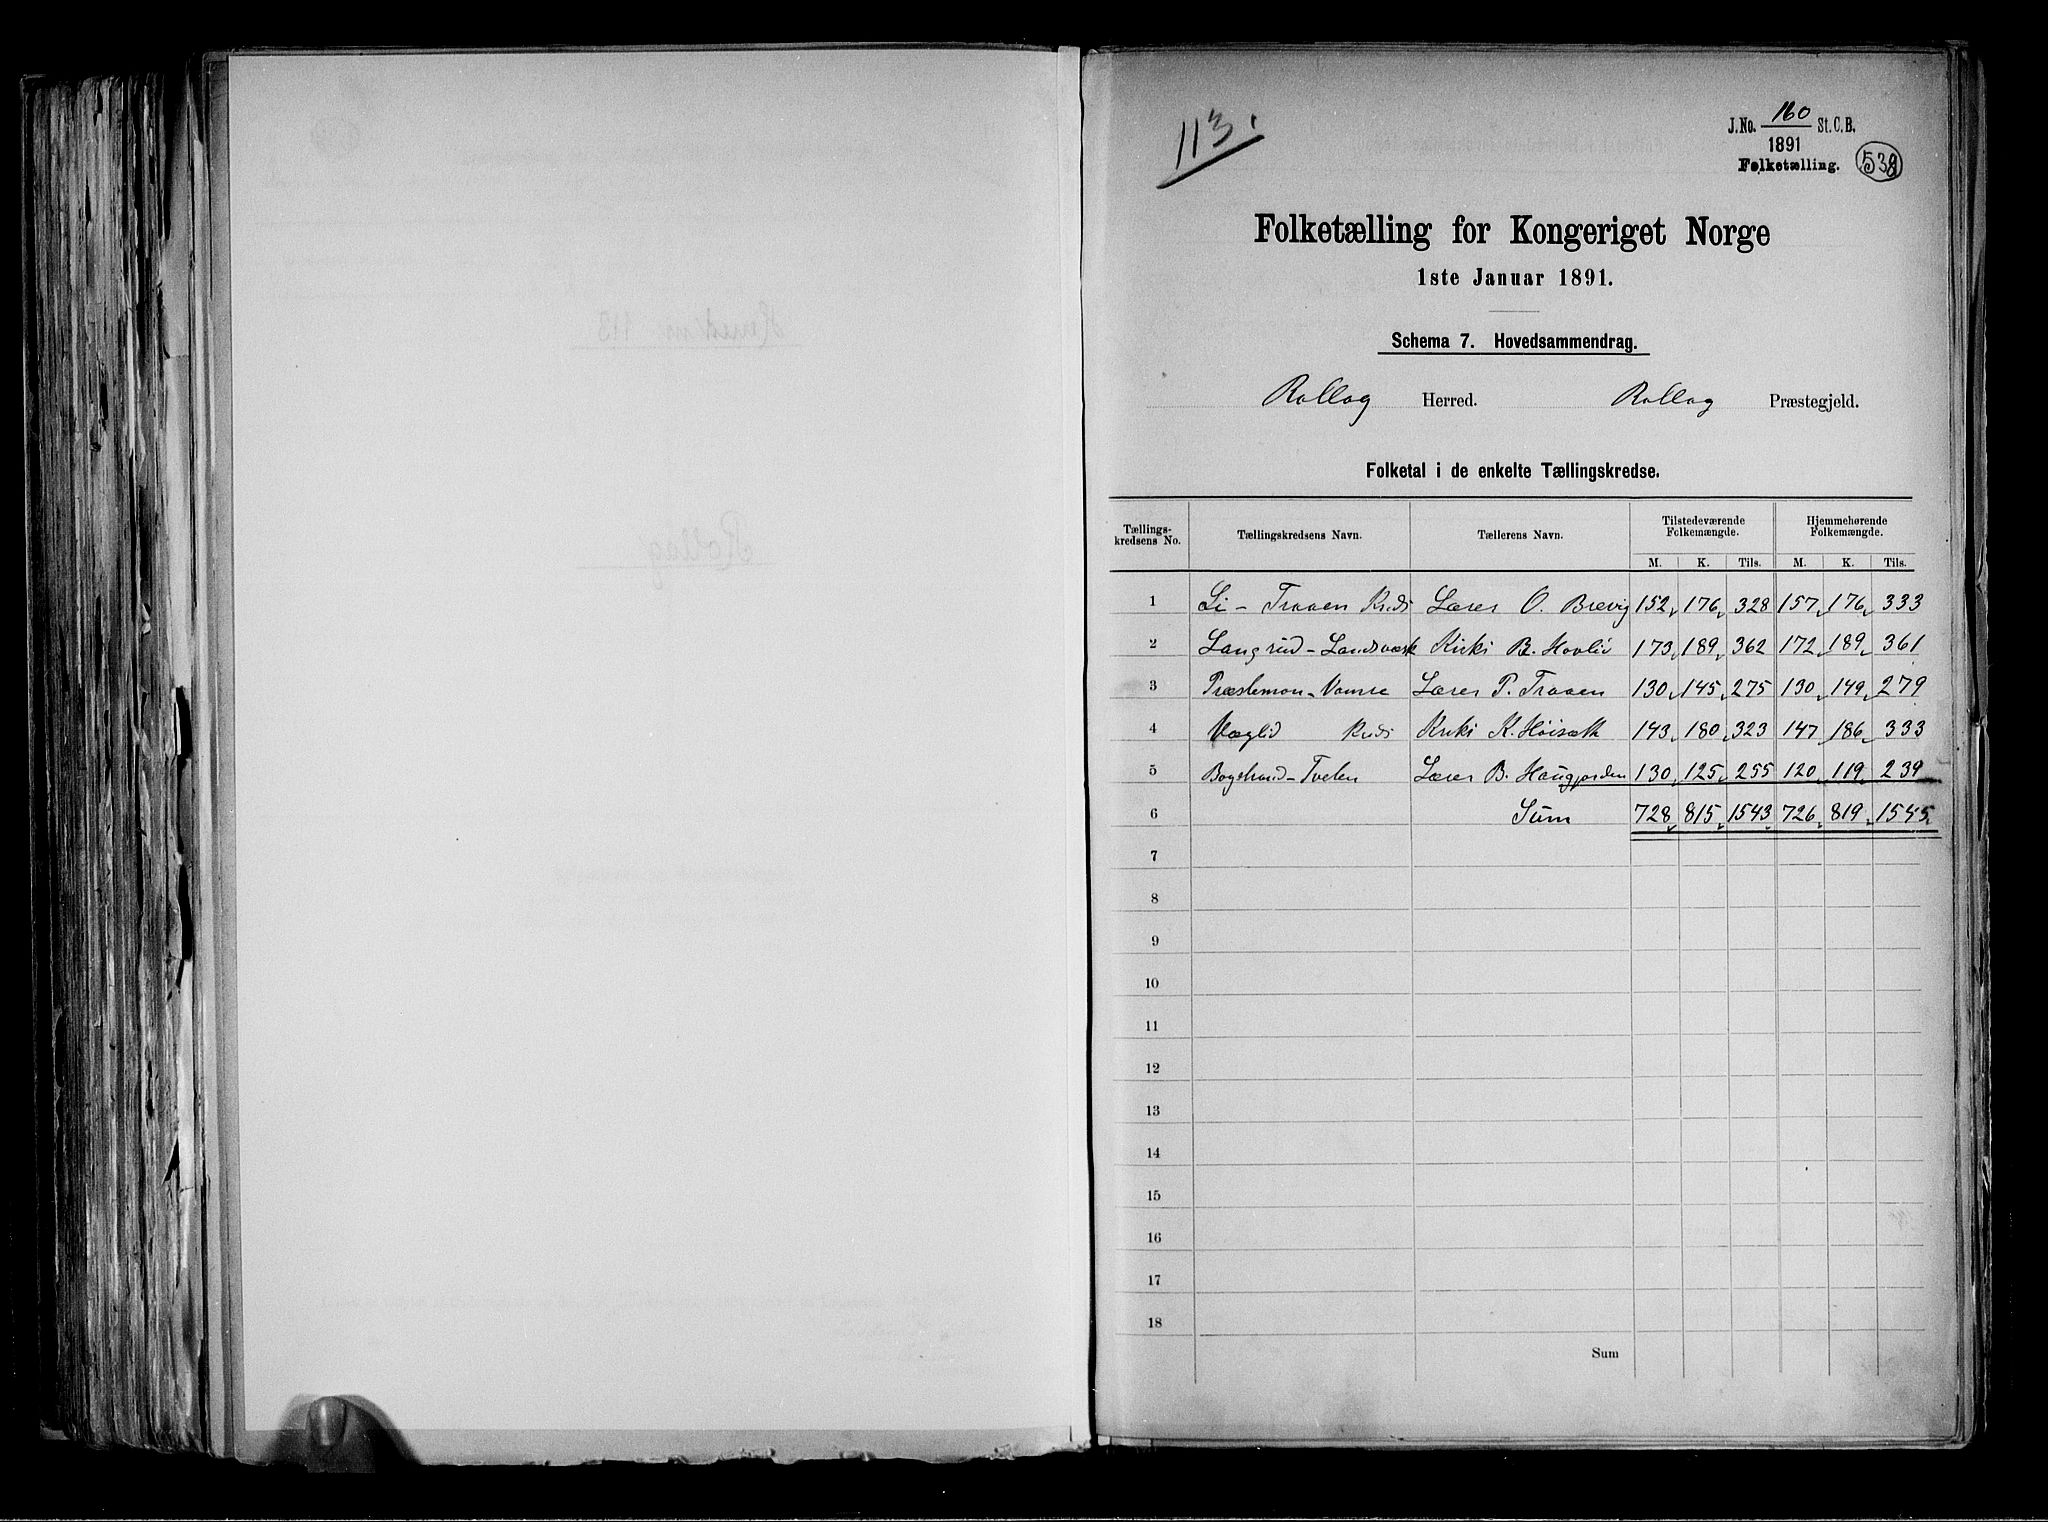 113.
J.No. 160 St. C. B.
1891
Folketælling.
538
Folketælling for Kongeriget Norge
1ste Januar 1891.
Schema 7. Hovedsammendrag.
Rollag Herred. Rollag Præstegjeld.
Folketal i de enkelte Tællingskredse.
Tællingskredsens No. Tællingskredsens Navn. Tællerens Navn. Tilstedeværende Folkemængde. Hjemmehørende Folkemængde.
M. K. Tils. M. K. Tils.
1 Li - Traaen Kreds Lærer O. Brevig 152 176 328 157 176 333
2 Langrud - Landsværk Kirks. B. Hovliv 173 189 362 172 189 361
3 Præstemon - Vamre Lærer P. Traaen 130 145 275 130 149 279
4 Væglid Kreds Kirks. K. Hoisæth 143 180 323 147 186 333
5 Bogstrand - Tvelen Lærer B. Haugjorden 130 125 255 120 119 239
6 Sum 728 815 1543 726 819 1545
7
8
9
10
11
12
13
14
15
16
17
18
Sum
113
Rollag